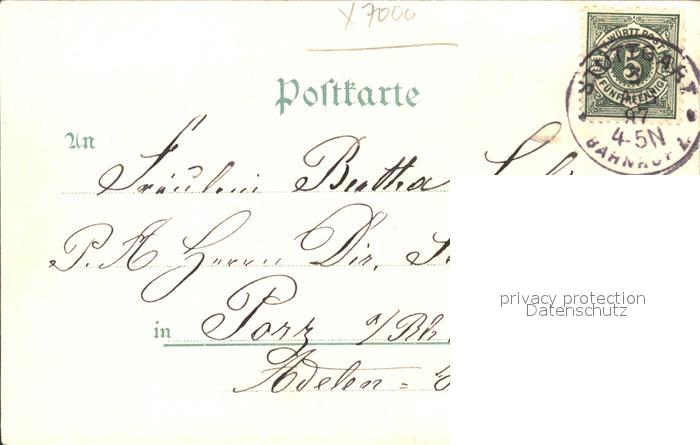 X 7000
K. WÜRTT. POST
5
FÜNF PFENNIG
STUTTGART
97
4-5N
BAHNHOF
Postkarte
An
Fräulein Bertha
P. A Herrn Dir.
in Porz a/Rh.
Adelen =
privacy protection
Datenschutz